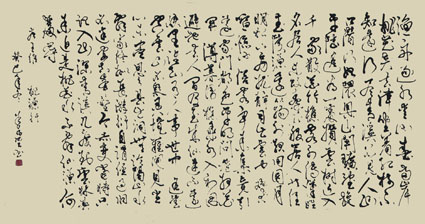 漁舟逐水愛山春兩岸
桃花夾古津坐看紅樹不
知遠行盡青溪不見人山
口潛行始隈隩山開曠望旋
平陸遙看一處攢雲樹近入
千家散花竹樵客初傳漢姓
名居人未改秦衣服居人共住武
陵源還從物外起田園月
明松下房櫳靜日出雲中雞犬
喧驚聞俗客爭來集競引
還家問都邑平明閭巷掃花
開薄暮漁樵乘水入初因
避地去人間及至成仙遂不
還峽裡誰知有人事世中遙
望空雲山不疑靈境難聞見塵
心未盡思鄉縣出洞無論隔山
水辭家終擬長游衍自謂經過
舊不迷安知峰壑今來變當時只
記入山深青溪幾曲到雲林
春來遍是桃花水不辨仙源何
處尋
桃源行
癸巳年